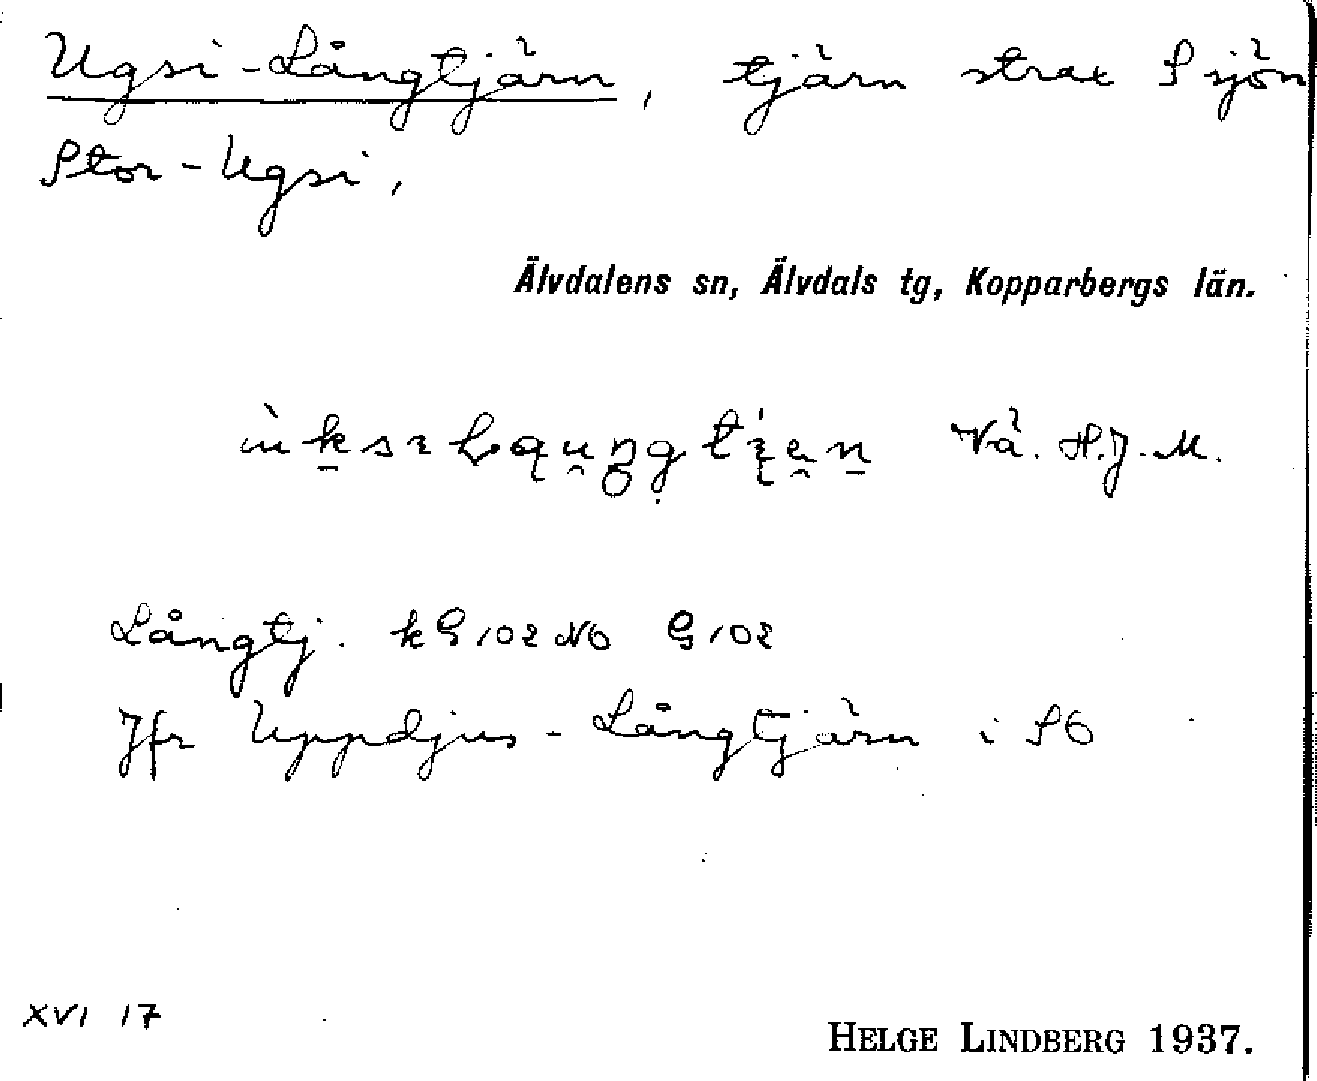 Ugsi-Långtjärn, tjärn strax S sjön
Stor-Ugsi,
Älvdalens sn, Älvdals tg, Kopparbergs län.
Vå. H.J.M.
Långtj. kG102NO G102
Jfr Uppdjus-Långtjärn i SO
XVI 17
HELGE LINDBERG 1937.